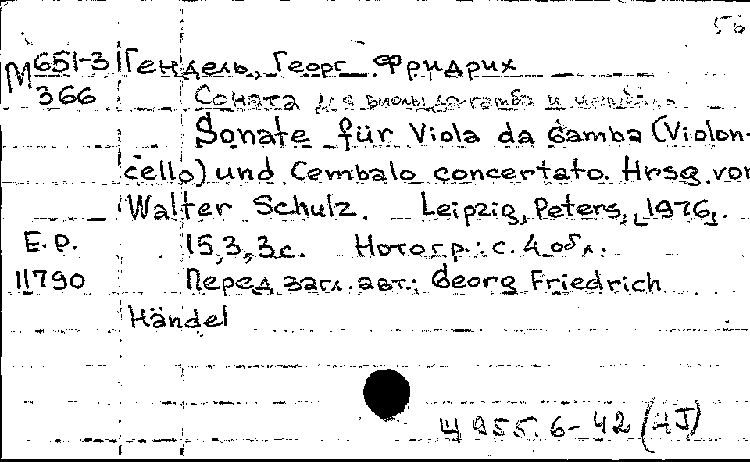 56
М 651-3 Гендель, Георг Фридрих
366 Соната для виолы да гамба и
Sonate für Viola da Gamba (Violon-
cello) und Cembalo concertato. Hrsg. von
Walter Schulz. Leipzig, Peters, [1976].
E.P. 15,3,3 с. Нотогр.: с. 4 обл.
11790 Перед загл. авт.: Georg Friedrich
Händel
Ц 955.6-42 (HJ)